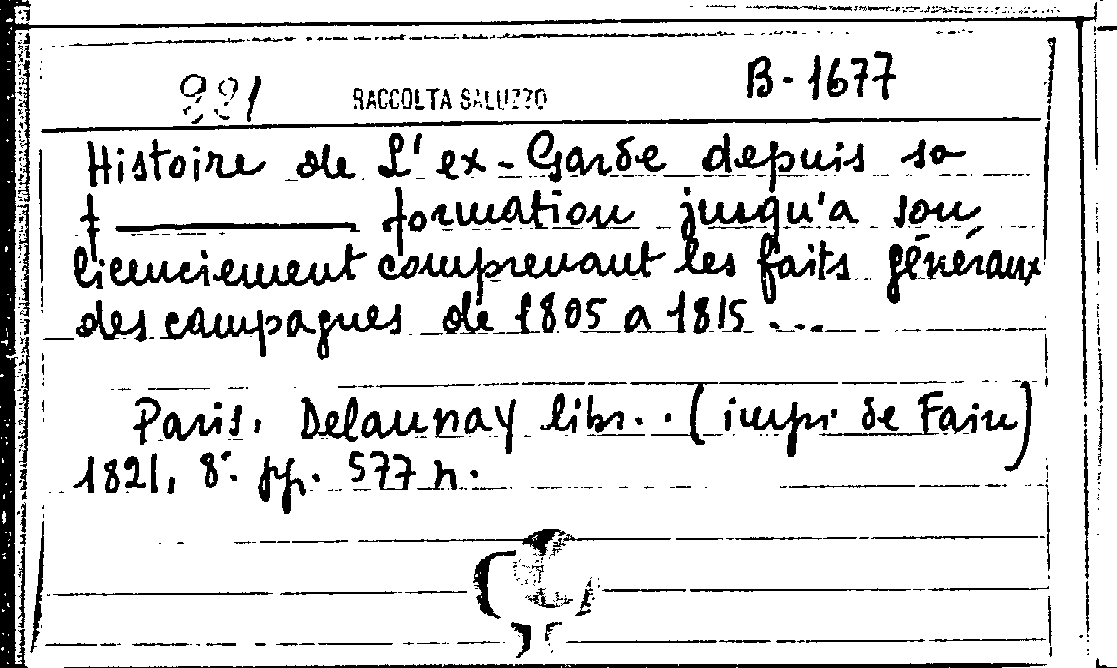 991 RACCOLTA SALUZZO B-1677
Histoire de L'ex-Garde depuis sa
f formation jusqu'a son
licenciement comprenant les faits généraux
des campagnes de 1805 a 1815 ...
Paris. Delaunay libr.. (impr. de Fain)
1821, 8°. pp. 577 n.